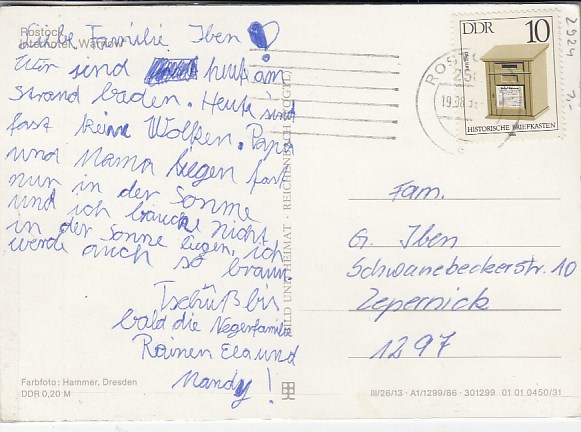 Rostock
Interhotel „Warnow"
Liebe Familie Iben
Wir sind heute am
Strand baden. Heute sind
fast keine Wolken. Papa
und Mama liegen fast
nur in der Sonne
und ich brauche nicht
in der Sonne liegen, ich
werde auch so braun.
Tschüß bis
bald die Negerfamilie
Rainer Ela und
Mandy!
Farbfoto: Hammer, Dresden
DDR 0,20 M
BILD UND HEIMAT · REICHENBACH (VOGTL)
III/26/13 · A1/1299/86 · 301299 01 01 0450/31
DDR 10
HISTORISCHE BRIEFKASTEN
ROSTOCK
25
19.08
2924
Fam.
G. Iben
Schwanebeckerstr. 10
Zepernick
1297